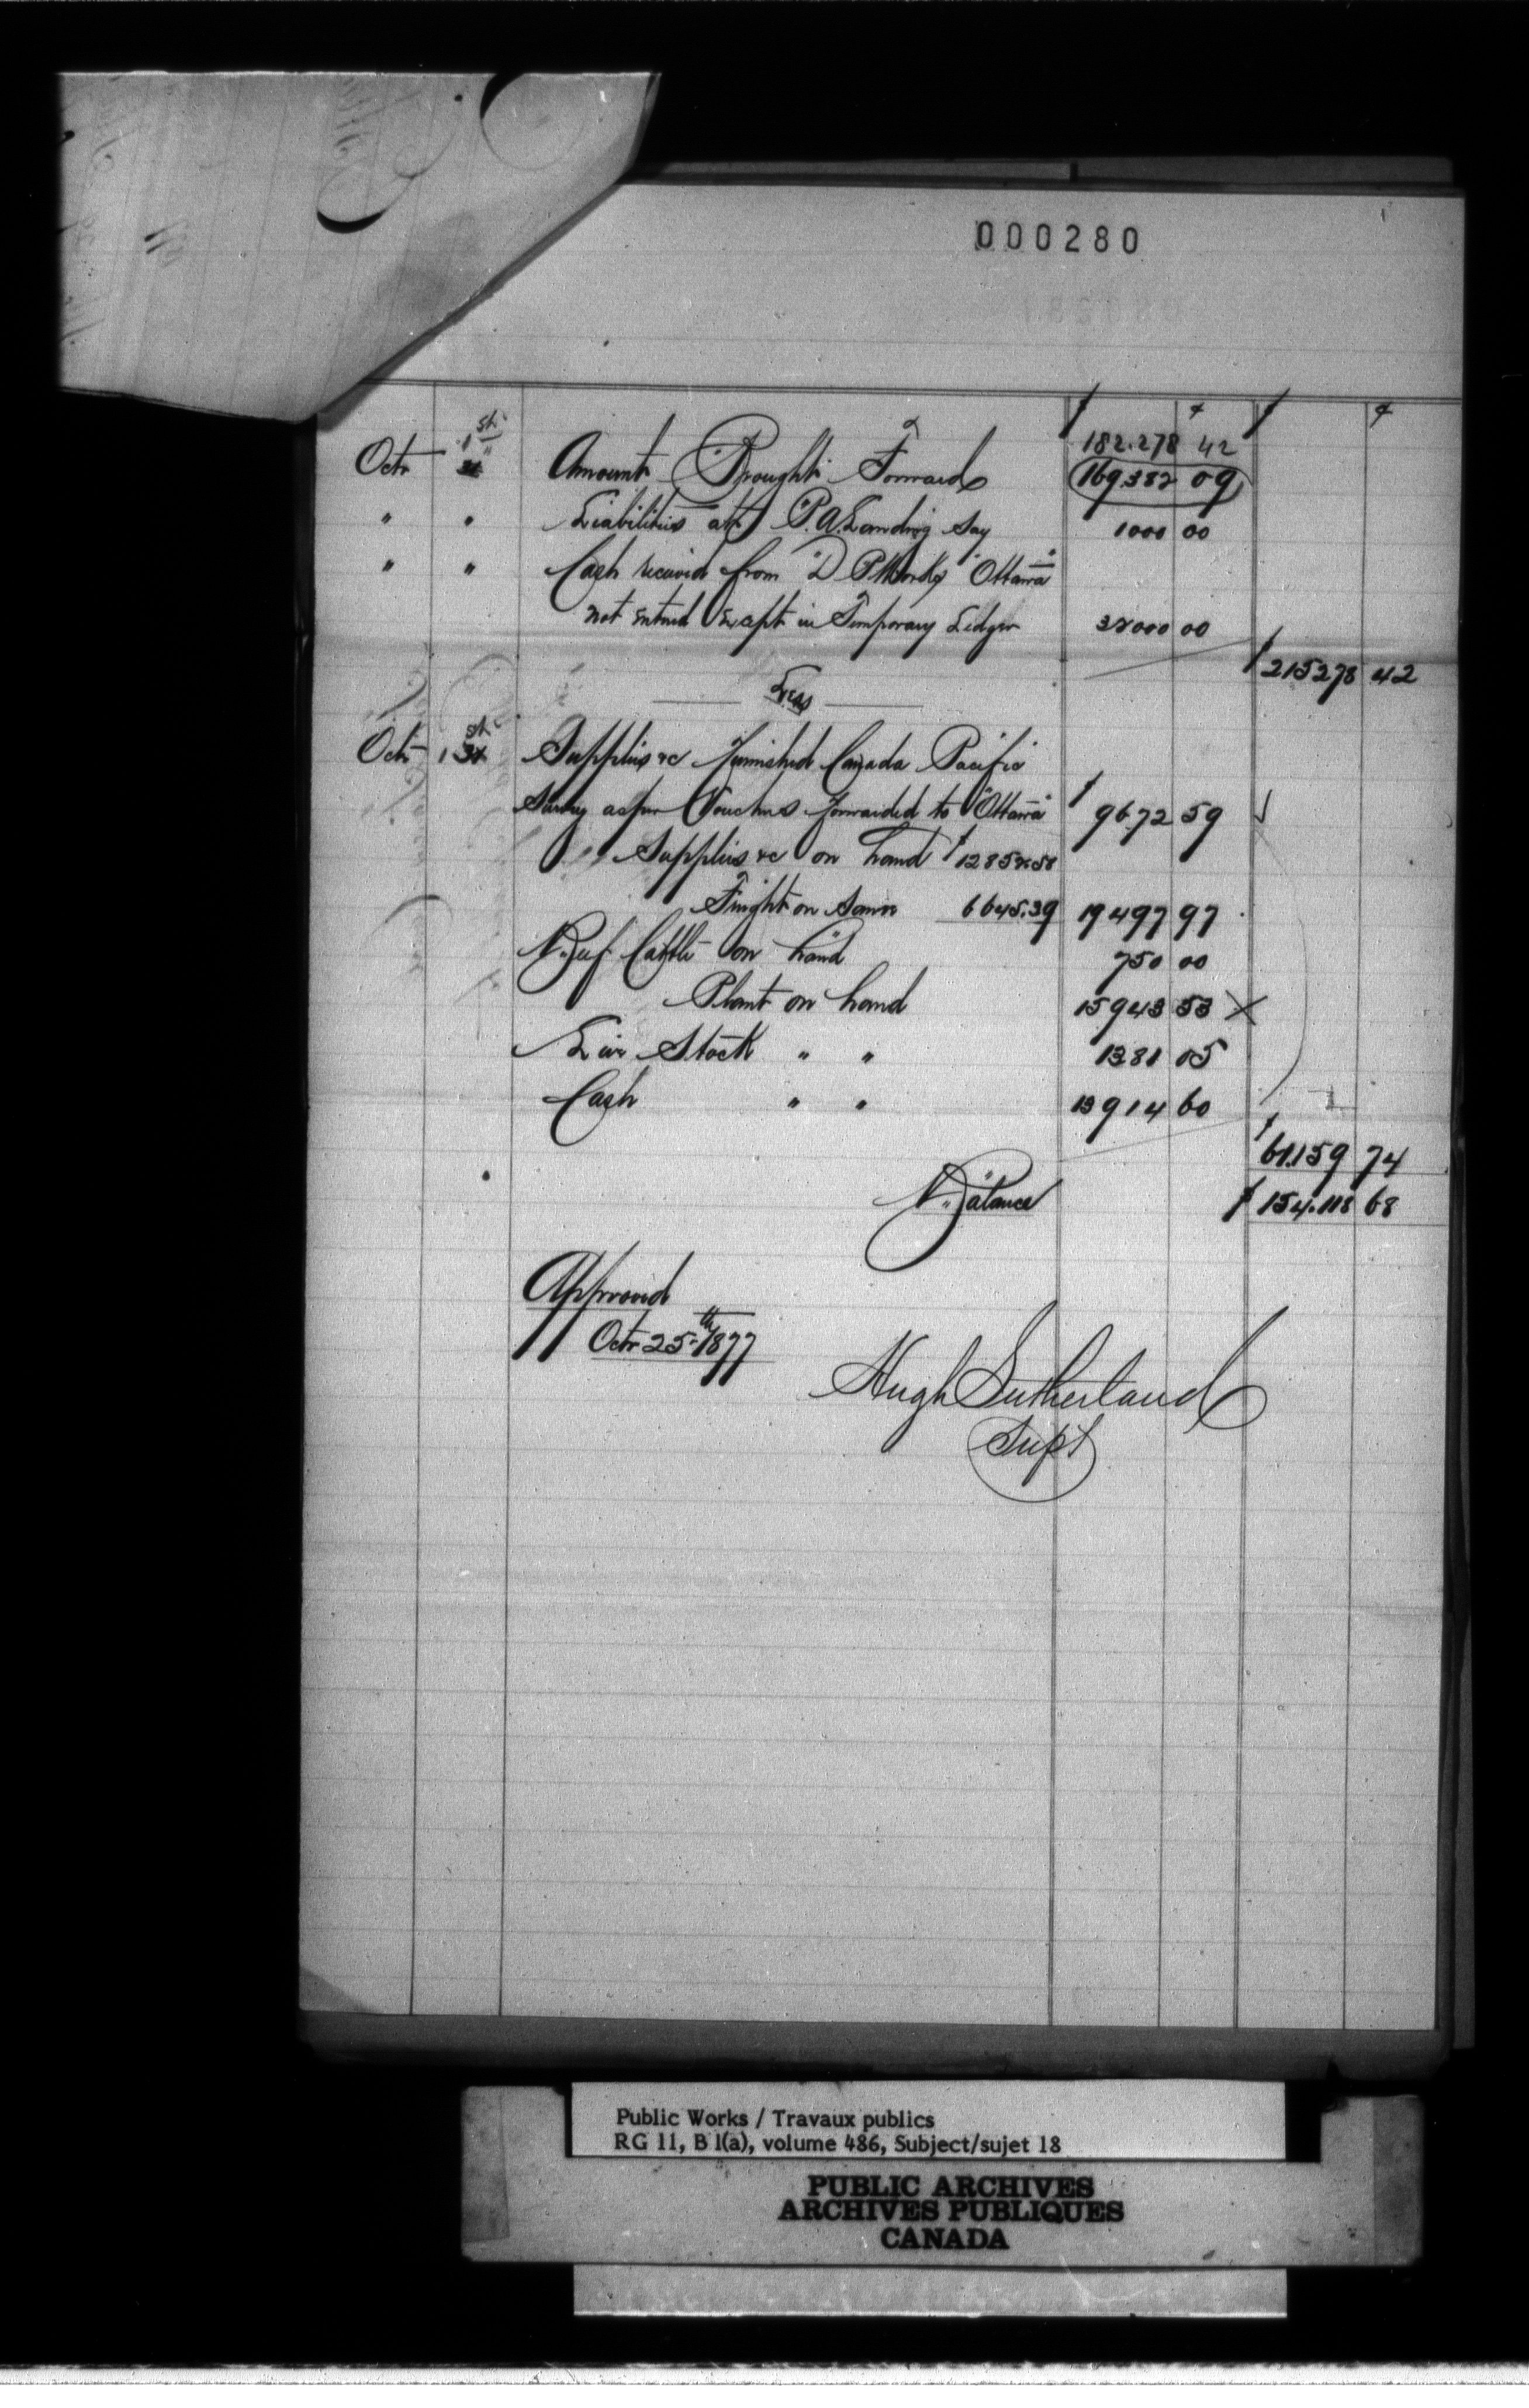 000280
$ ¢ $ ¢
182.278 42
Octr 1st Amount Brought Forward 169382 09
" " Liabilities at P.A. Landing Say 1000 00
" " Cash received from "D P Works" "Ottawa"
not entered except in Temporary Ledger 32000 00
$ 215278 42
Less
Octr 1st Supplies &c Furnished Canada Pacific
Survey as per Vouchers forwarded to "Ottawa" $ 9672 59
Supplies &c on hand $ 12852.58
Freight on Same 6645.39 19497 97
Beef Cattle on hand 750 00
Plant on hand 15943 53
Live Stock " " 1381 05
Cash " " 13914 60
$ 61.159 74
Balance $ 154.118 68
Approved
Octr 25th 1877
Hugh Sutherland
Supt
Public Works / Travaux publics
RG 11, B 1(a), volume 486, Subject/sujet 18
PUBLIC ARCHIVES
ARCHIVES PUBLIQUES
CANADA